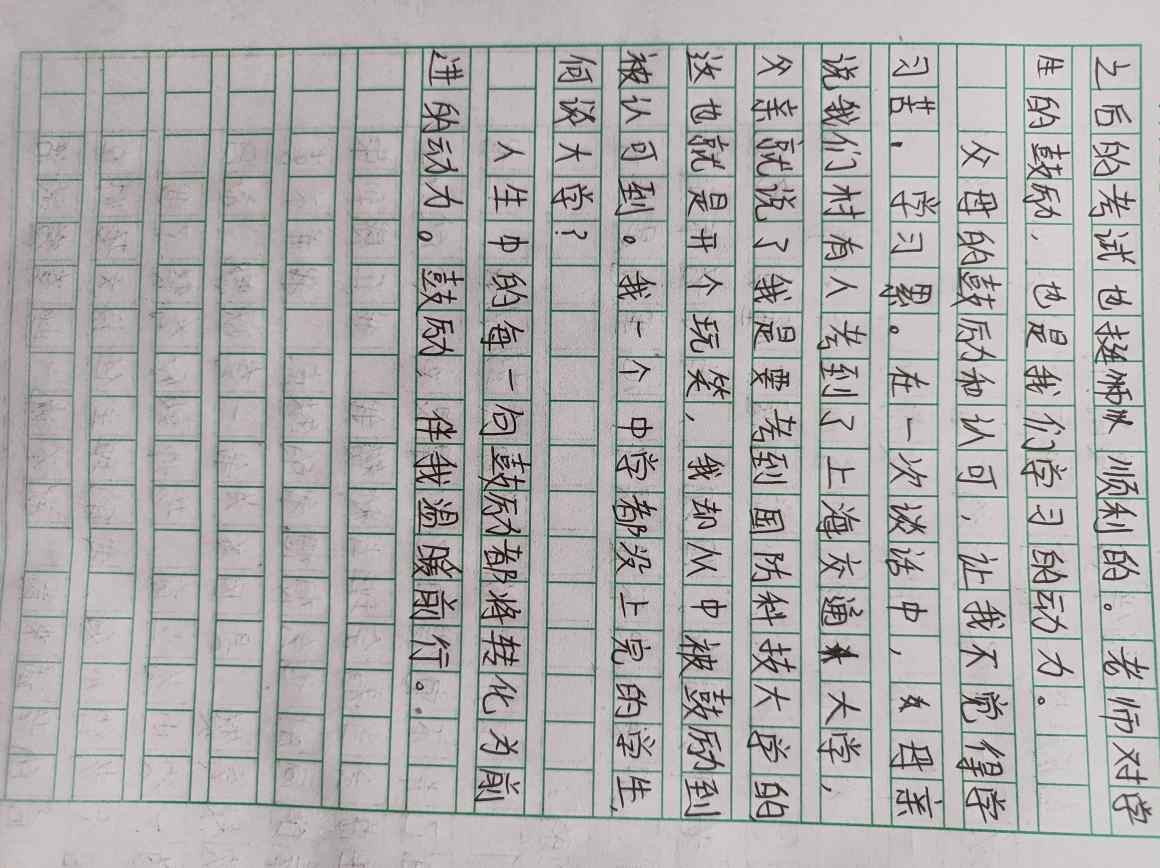 之后的考试也挺顺利的。老师对学
生的鼓励，也是我们学习的动力。
父母的鼓励和认可，让我不觉得学
习苦，学习累。在一次谈话中，母亲
说我们村有人考到了上海交通大学，
父亲就说了我是要考到国防科技大学的
这也就是开个玩笑，我却从中被鼓励到
被认可到。我一个中学都没上完的学生，
何谈大学？
人生中的每一句鼓励都将转化为前
进的动力。鼓励，伴我温暖前行。